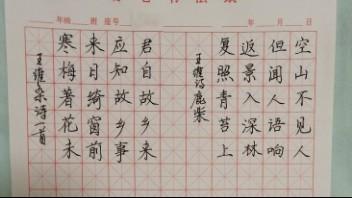 年级 班 座号 年 月 日
空山不见人
但闻人语响
返景入深林
复照青苔上
王维诗鹿柴
君自故乡来
应知故乡事
来日绮窗前
寒梅著花未
王维杂诗一首